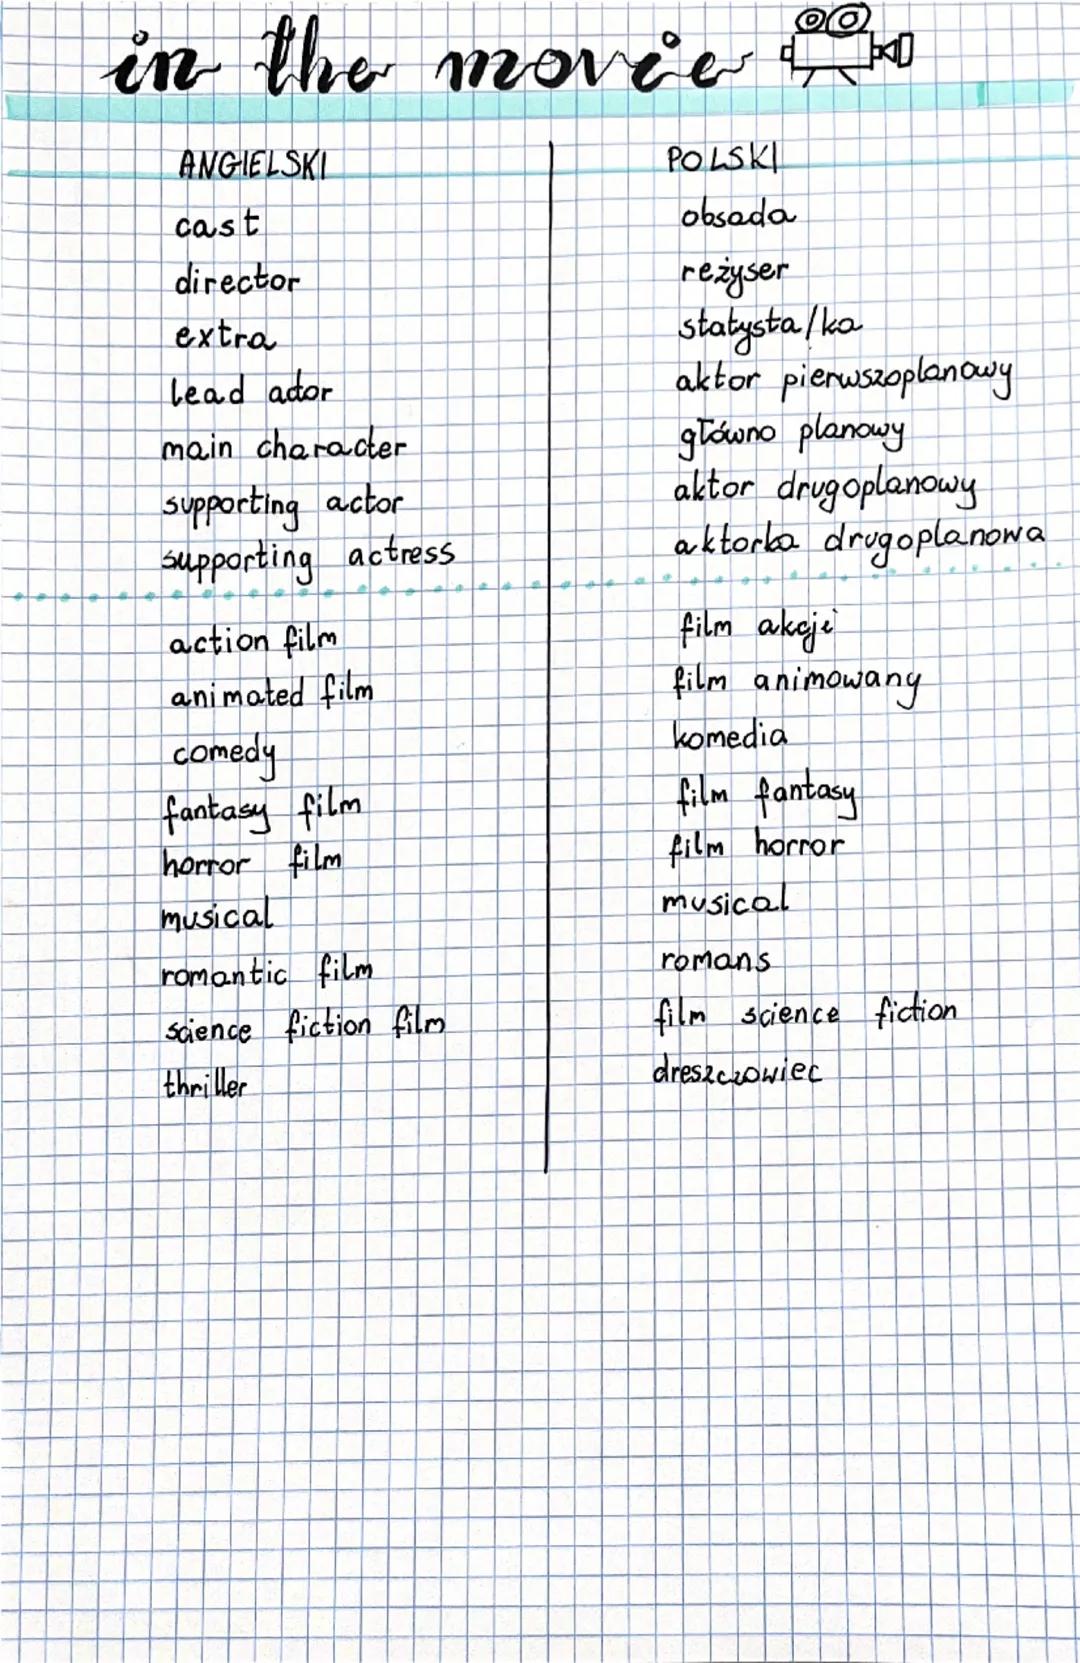 in the movie
ANGIELSKI POLSKI
cast obsada
director reżyser
extra statysta/ka
lead actor aktor pierwszoplanowy
main character główno planowy
supporting actor aktor drugoplanowy
supporting actress aktorka drugoplanowa
action film film akcji
animated film film animowany
comedy komedia
fantasy film film fantasy
horror film film horror
musical musical
romantic film romans
science fiction film film science fiction
thriller dreszczowiec